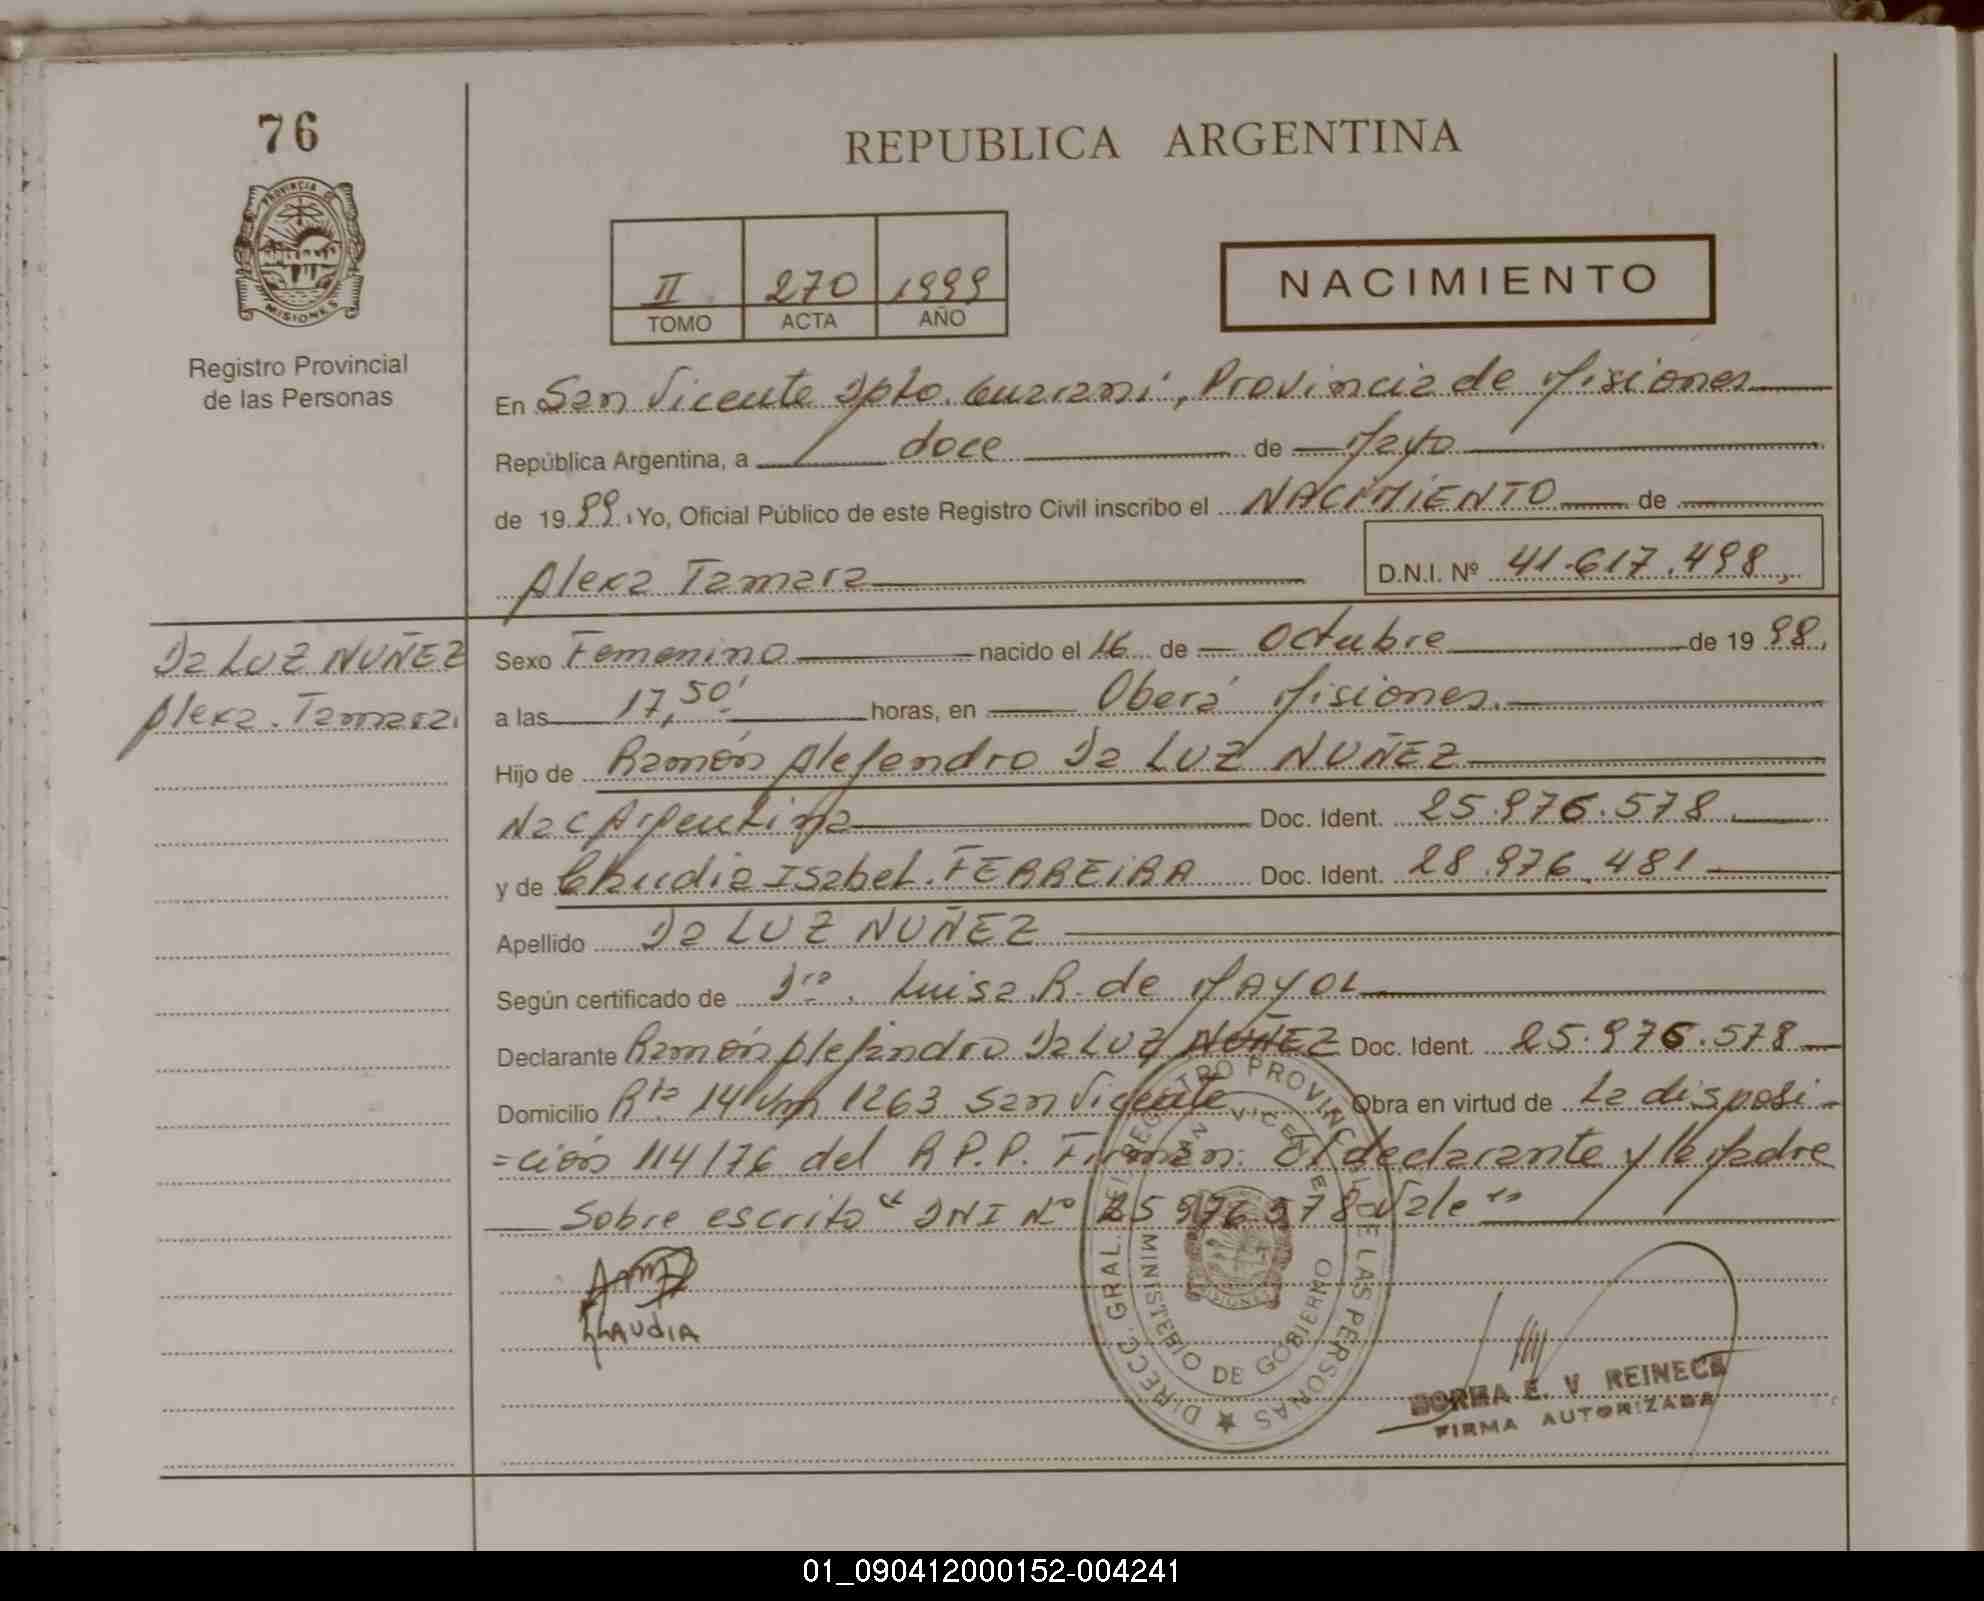 76
PROVINCIA DE
MISIONES
Registro Provincial
de las Personas
REPUBLICA ARGENTINA
II 270 1999
TOMO ACTA AÑO
NACIMIENTO
En San Vicente Dpto. Guaraní, Provincia de Misiones
República Argentina, a doce de Mayo
de 1999. Yo, Oficial Público de este Registro Civil inscribo el NACIMIENTO de
Alexa Tamara D.N.I. Nº 41.617.498,
Da LUZ NUÑEZ
Alexa. Tamara.
Sexo Femenino nacido el 16 de Octubre de 1998,
a las 17,50' horas, en Oberá Misiones.
Hijo de Ramón Alejandro Da LUZ NUÑEZ
Nac Argentina Doc. Ident. 25.976.578
y de Claudia Isabel. FERREIRA Doc. Ident. 28.976.481
Apellido Da LUZ NUÑEZ
Según certificado de Dra. Luisa R. de MAYOL
Declarante Ramón Alejandro Da LUZ NUÑEZ Doc. Ident. 25.976.578
Domicilio Rta 14 Km 1263 San Vicente Obra en virtud de La disposi-
=ción 114/76 del R.P.P. Firman: El declarante y la Madre
Sobre escrito "DNI Nº 25976578-Vale"
CLAUDIA
DIRECC. GRAL. DEL REGISTRO PROVINCIAL DE LAS PERSONAS
SAN VICENTE
MINISTERIO DE GOBIERNO
MISIONES
NORMA E. V. REINECK
FIRMA AUTORIZADA
01_090412000152-004241